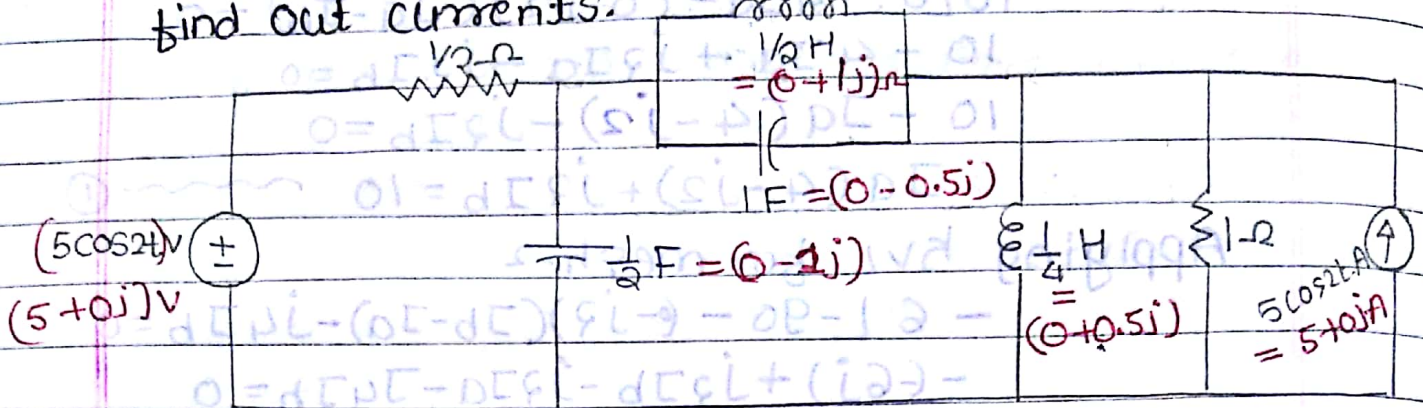 find out currents.
1/2 Ω
1/2 H
= (0+1j)Ω
1F = (0-0.5j)
(5cos2t)v
(5+0j)v
1/2 F = (0-1j)
1/4 H
=
(0+0.5j)
1Ω
5cos2t.A
= 5+0jA